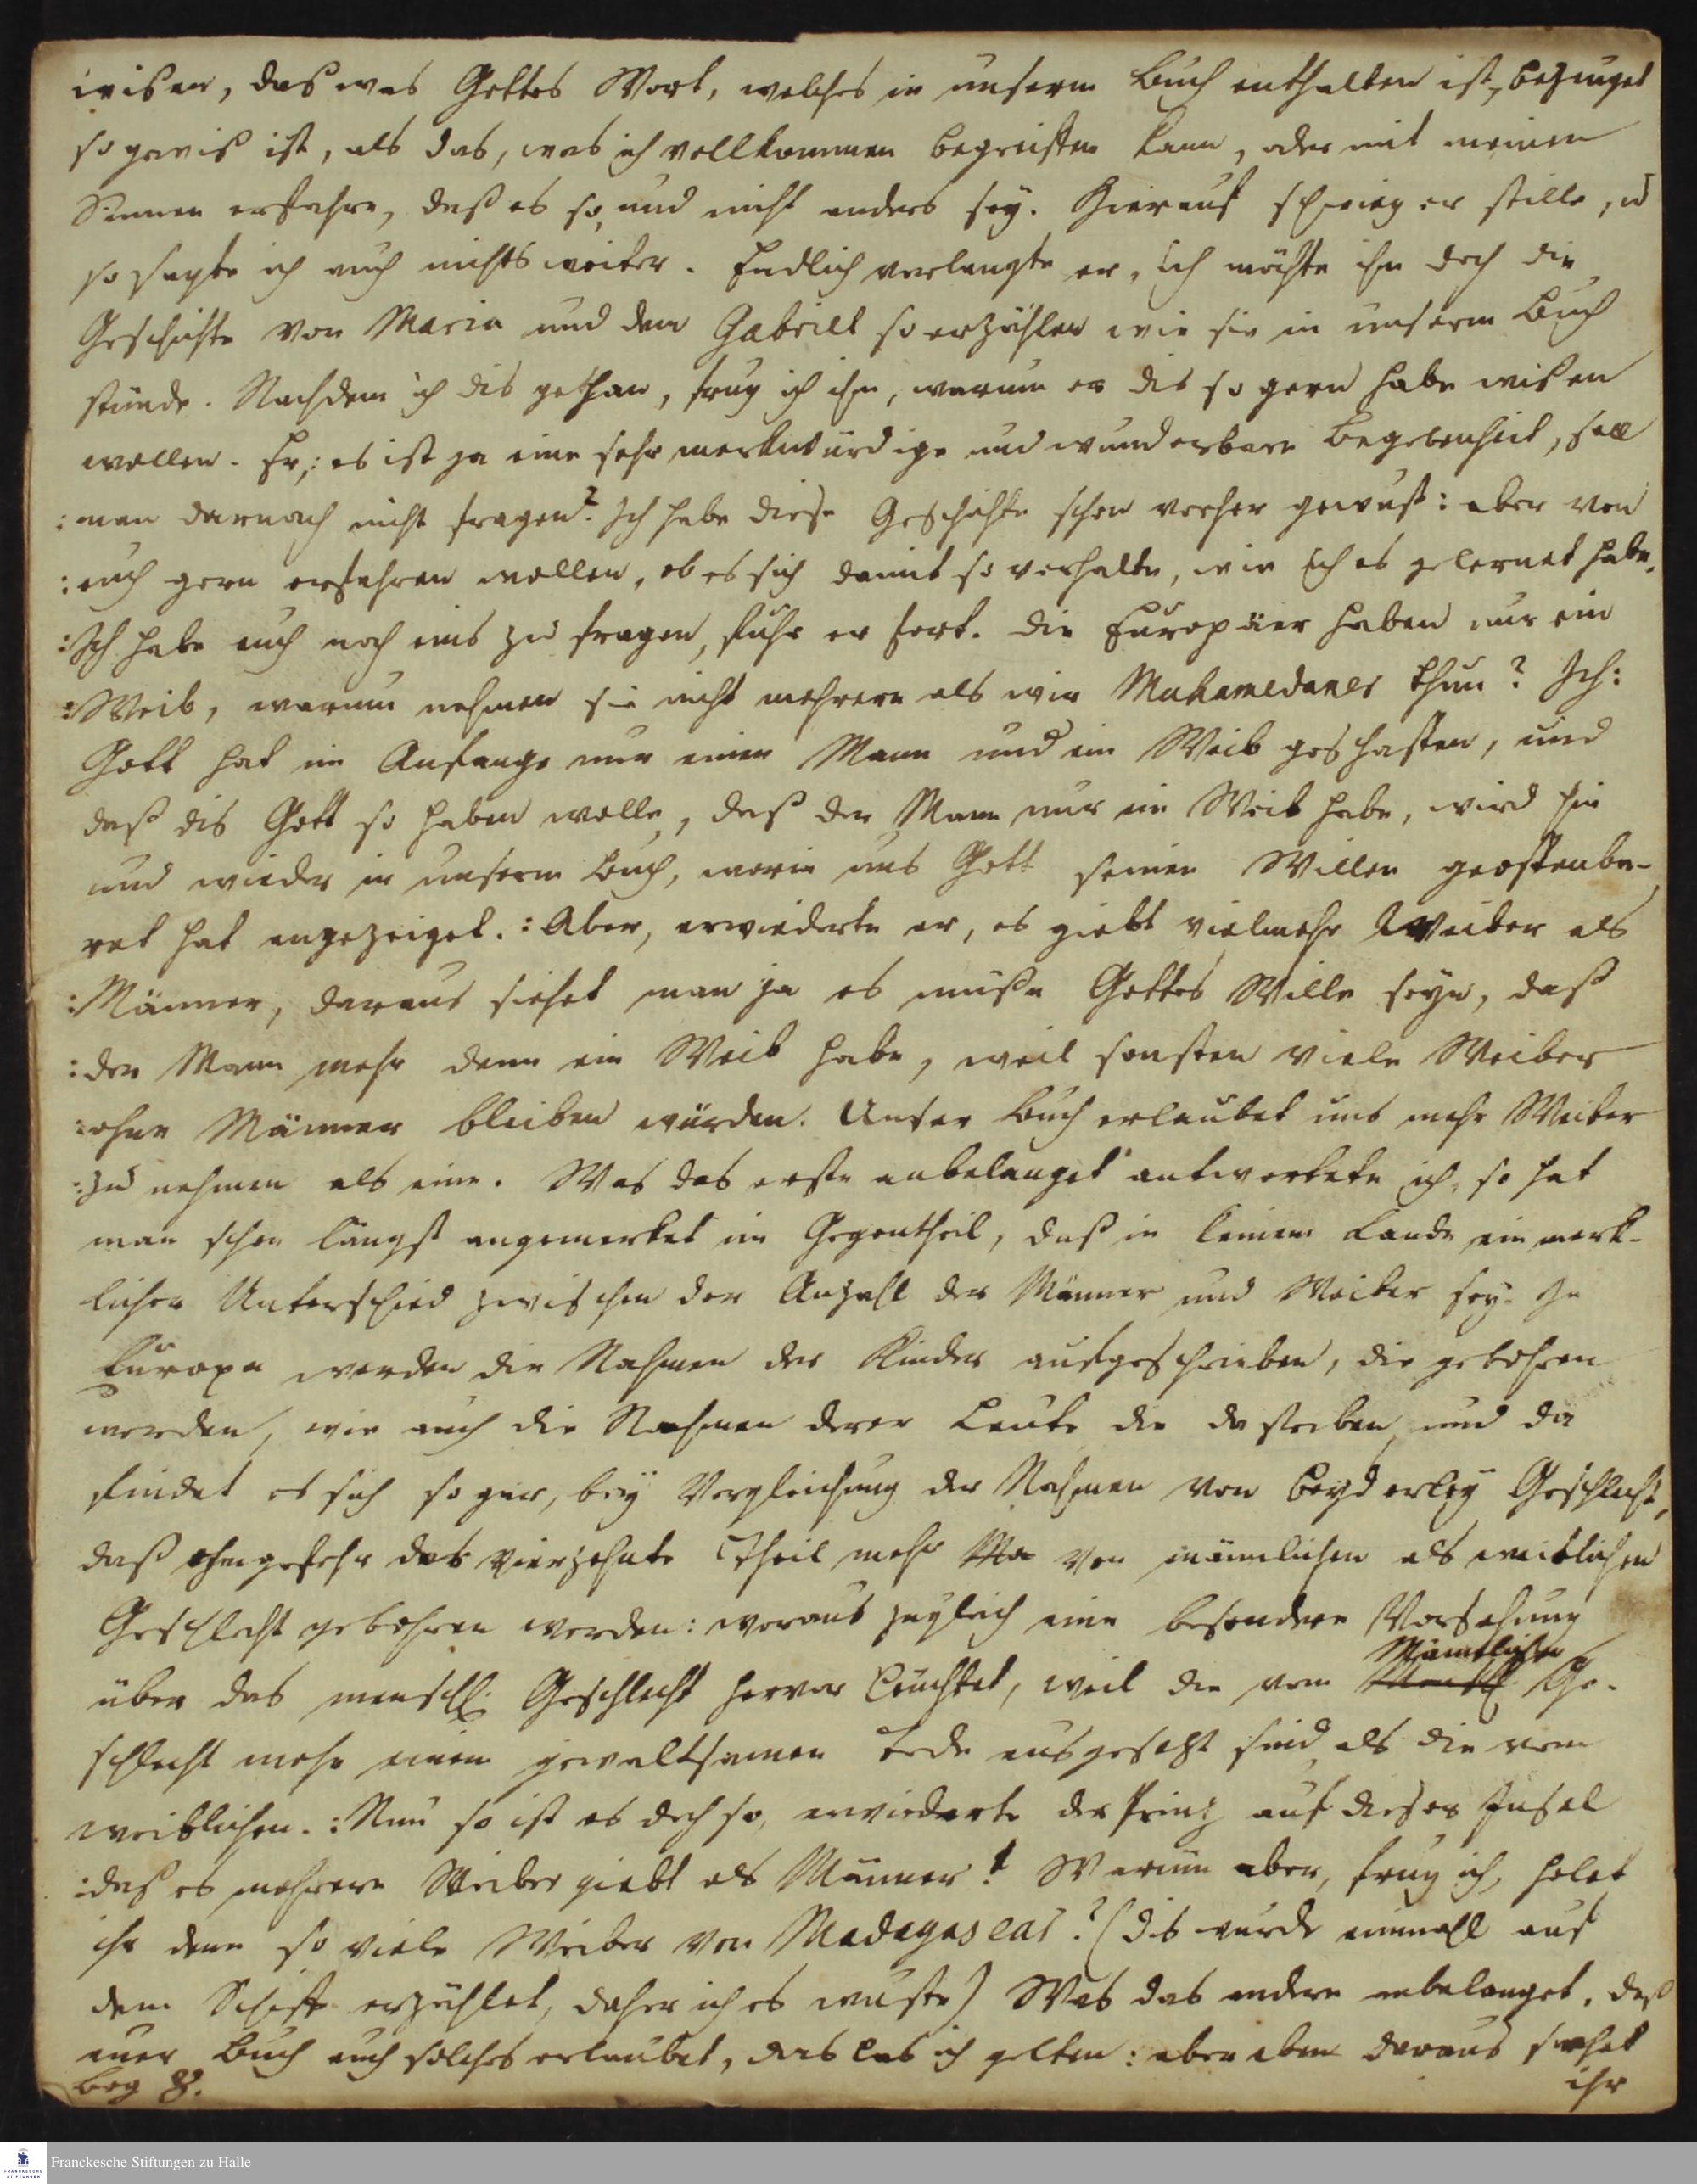 wißen, das was Gottes Wort, welches in unserm Buch enthalten ist, bezeuget
so gewiß ist, als das, was ich vollkommen begreiffen kann, oder mit meinen
Sinnen erfahre, daß es so, und nicht anders sey. Hierauf schwieg er stille, u
so sagte ich auch nichts weiter. Endlich verlangte er, ich möchte ihm doch die
Geschichte von Maria und dem Gabriel so erzählen wie sie in unserm Buch
stünde. Nachdem ich dis gethan, frug ich ihn, warum er dis so gern habe wißen
wollen. Er,: es ist ja eine sehr merkwürdige und wunderbare Begebenheit, soll
: man darnach nicht fragen? Ich habe diese Geschichte schon vorher gewust: aber von
: euch gern erfahren wollen, ob es sich damit so verhalte, wie ich es gelernet habe.
: Ich habe euch noch eins zu fragen, fuhr er fort. Die Europäer haben nur ein
: Weib, warum nehmen sie nicht mehrere als wir Muhamedaner thun? Ich:
Gott hat im Anfange nur einen Mann und ein Weib geschaffen, und
daß dis Gott so haben wolle, daß der Mann nur ein Weib habe, wird hin
und wieder in unserm Buch, worin uns Gott seinen Willen geoffenba-
ret hat angezeiget. : Aber, erwiederte er, es giebt vielmehr Weiber als
: Männer, daraus siehet man ja es müße Gottes Wille seyn, daß
: der Mann mehr denn ein Weib habe, weil sonsten viele Weiber
: ohne Männer bleiben würden. Unser Buch erlaubet uns mehr Weiber
: zu nehmen als eine. Was das erste anbelanget antwortete ich, so hat
man schon längst angemerket im Gegentheil, daß in keinem Lande ein merk-
licher Unterschied zwischen der Anzahl der Männer und Weiber sey. In
Europa werden die Nahmen der Kinder aufgeschrieben, die gebohren
werden, wie auch die Nahmen derer Leute die da sterben, und da
findet es sich so gar, bey Vergleichung der Nahmen von beyderley Geschlecht,
daß ohngefehr das vierzehnte Theil mehr Ma von mänlichen als weiblichen
Geschlecht gebohren werden: woraus zugleich eine besondere Vorsehung
Mänlichen
über das menschl. Geschlecht hervor leuchtet, weil die vom Ge-
schlecht mehr einem gewaltsamen Tode ausgesetzt sind, als die vom
weiblichen. : Nun so ist es doch so, erwiederte der Prinz auf dieser Insel
: daß es mehrere Weiber giebt als Männer! Warum aber, frug ich, holet
ihr denn so viele Weiber von Madagascar? (Dis wurde einmahl auf
dem Schiff erzählet, daher ich es wuste) Was das andere anbelanget, daß
euer Buch euch solches erlaubet, das las ich gelten: aber eben daraus sehet
Bog 8.
ihr
Franckesche Stiftungen zu Halle